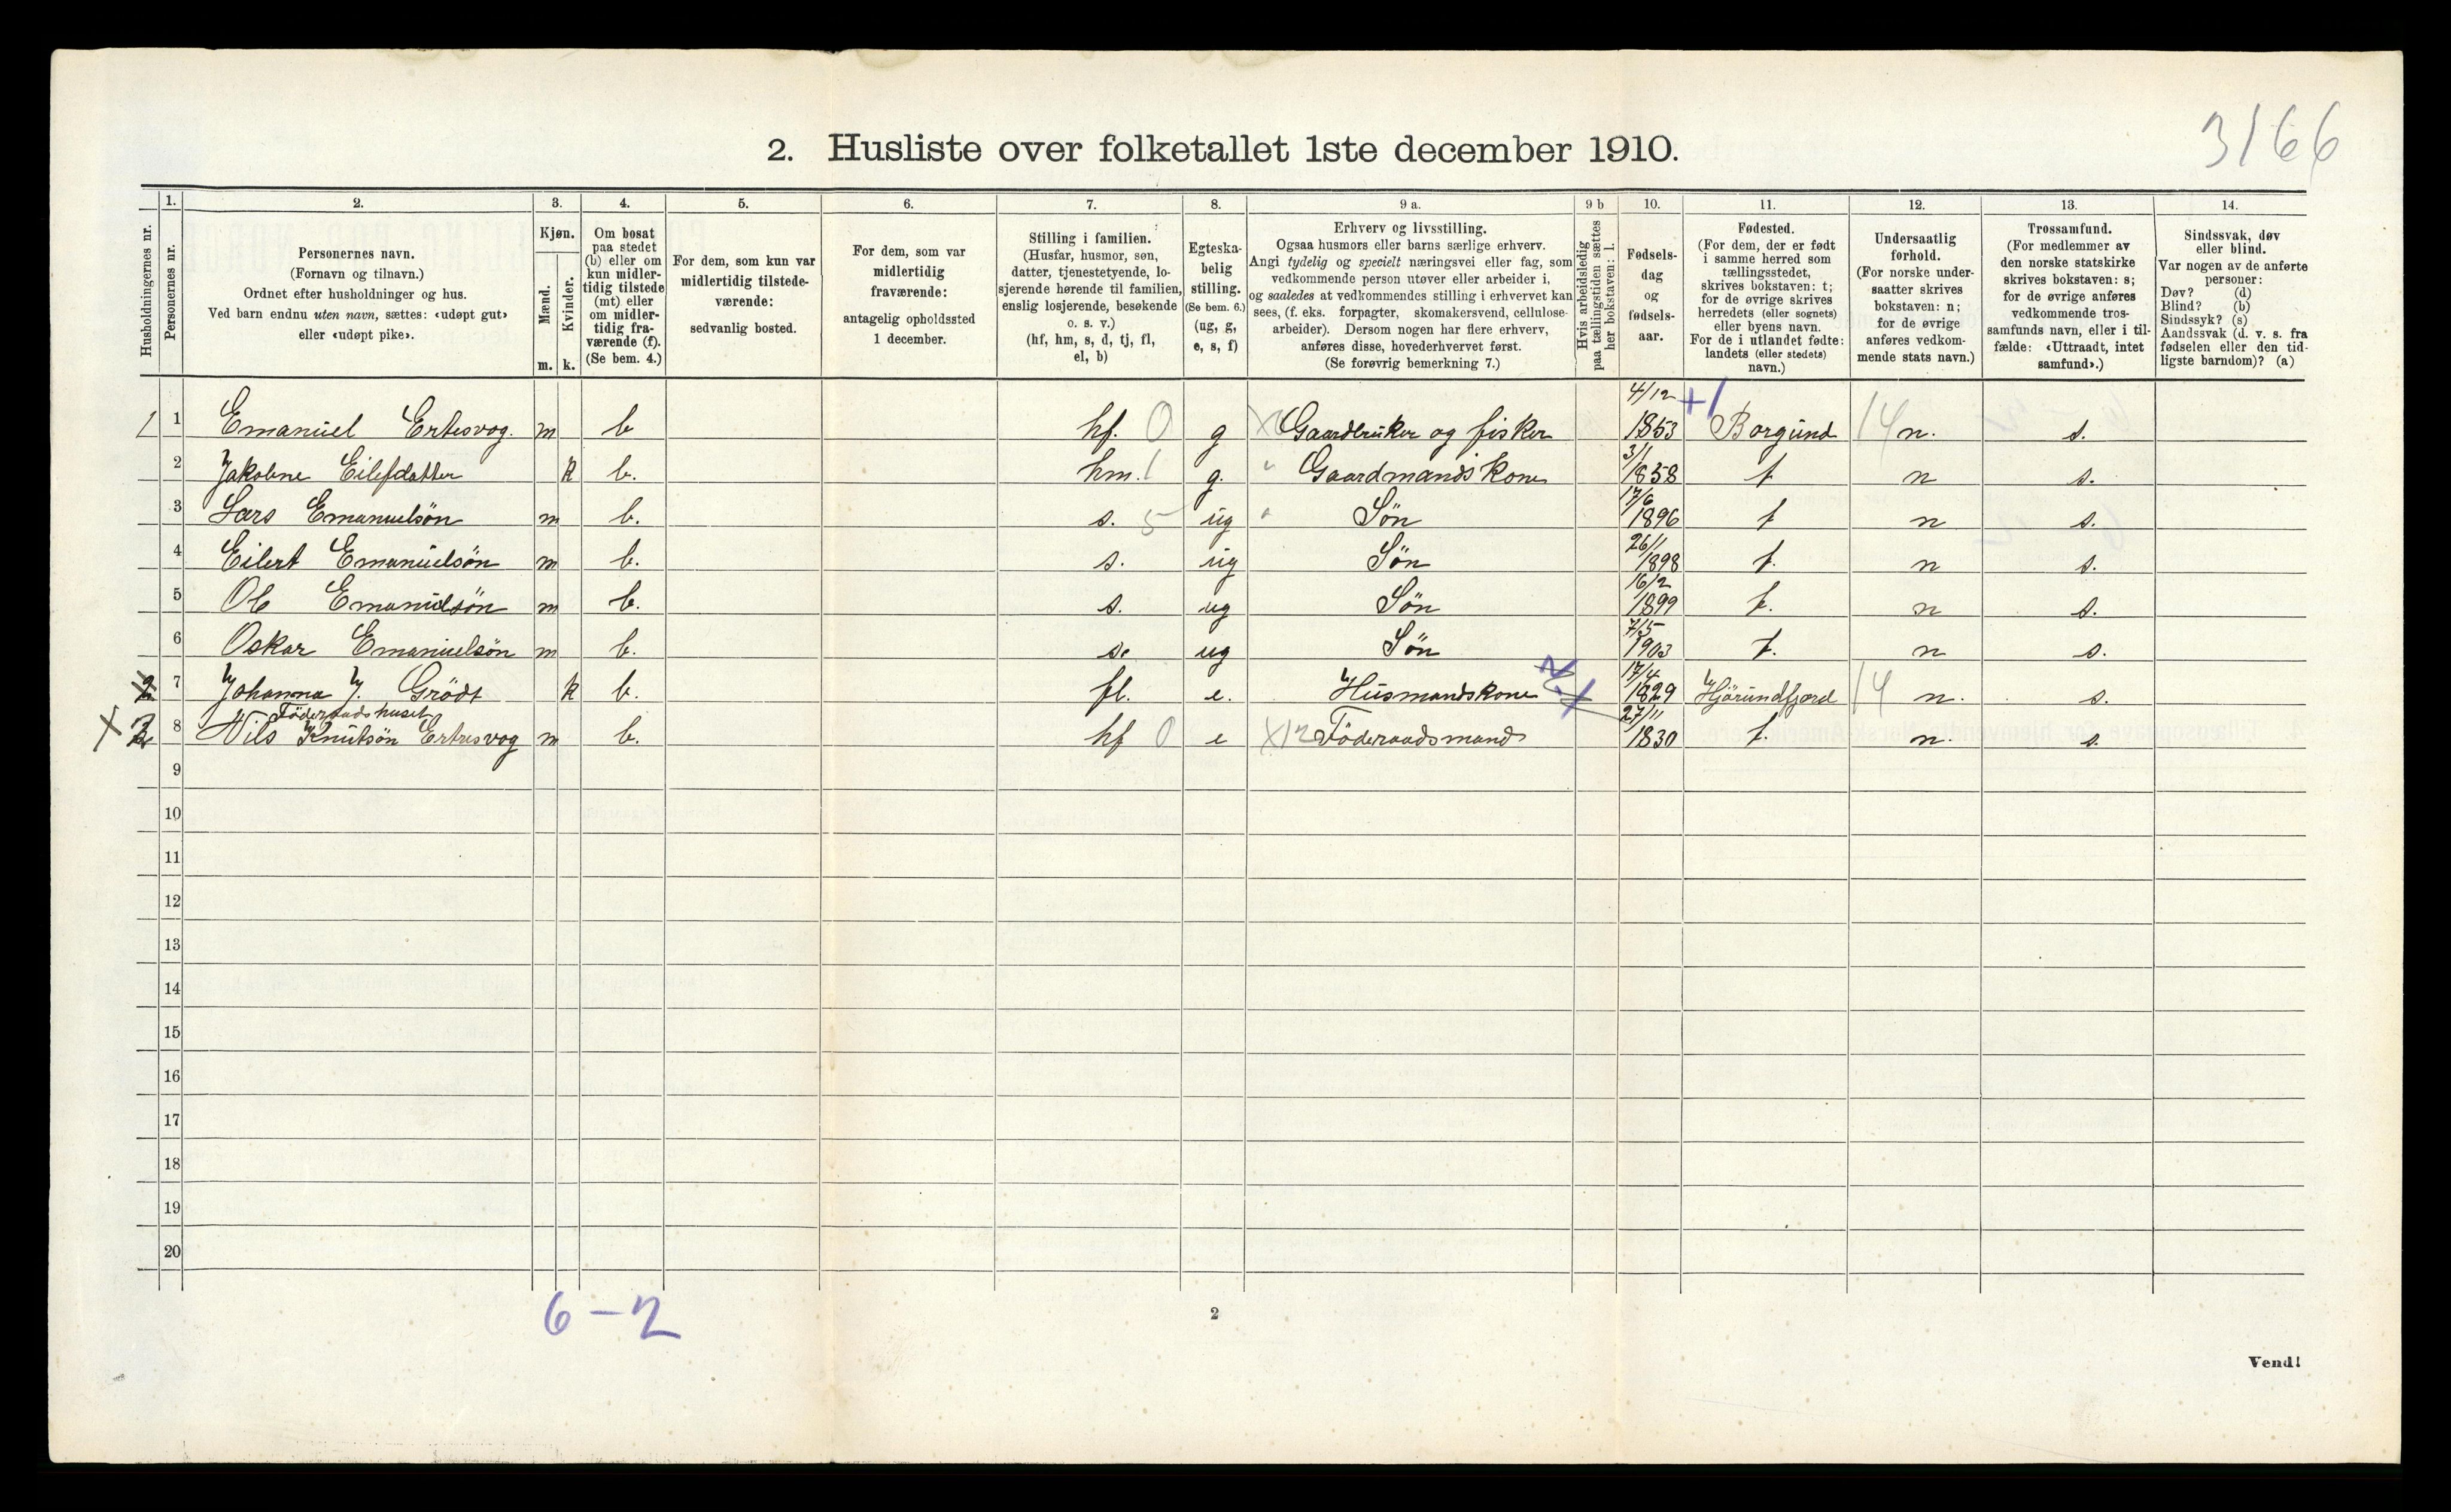 3166
2. Husliste over folketallet 1ste december 1910.
Husholdningernes nr.
1. Personernes nr.
2. Personernes navn. (Fornavn og tilnavn.) Ordnet efter husholdninger og hus. Ved barn endnu uten navn, sættes: «udøpt gut» eller «udøpt pike».
3. Kjøn. Mænd. m. Kvinder. k.
4. Om bosat paa stedet (b) eller om kun midlertidig tilstede (mt) eller om midlertidig fraværende (f). (Se bem. 4.)
5. For dem, som kun var midlertidig tilstedeværende: sedvanlig bosted.
6. For dem, som var midlertidig fraværende: antagelig opholdssted 1 december.
7. Stilling i familien. (Husfar, husmor, søn, datter, tjenestetyende, losjerende hørende til familien, enslig losjerende, besøkende o. s. v.) (hf, hm, s, d, tj, fl, el, b)
8. Egteskabelig stilling. (Se bem. 6.) (ug, g, e, s, f)
9 a. Erhverv og livsstilling. Ogsaa husmors eller barns særlige erhverv. Angi tydelig og specielt næringsvei eller fag, som vedkommende person utøver eller arbeider i, og saaledes at vedkommendes stilling i erhvervet kan sees, (f. eks. forpagter, skomakersvend, cellulosearbeider). Dersom nogen har flere erhverv, anføres disse, hovederhvervet først. (Se forøvrig bemerkning 7.)
9 b Hvis arbeidsledig paa tællingstiden sættes her bokstaven: l.
10. Fødselsdag og fødselsaar.
11. Fødested. (For dem, der er født i samme herred som tællingsstedet, skrives bokstaven: t; for de øvrige skrives herredets (eller sognets) eller byens navn. For de i utlandet fødte: landets (eller stedets) navn.)
12. Undersaatlig forhold. (For norske undersaatter skrives bokstaven: n; for de øvrige anføres vedkommende stats navn.)
13. Trossamfund. (For medlemmer av den norske statskirke skrives bokstaven: s; for de øvrige anføres vedkommende trossamfunds navn, eller i tilfælde: «Uttraadt, intet samfund».)
14. Sindssvak, døv eller blind. Var nogen av de anførte personer: Døv? (d) Blind? (b) Sindssyk? (s) Aandssvak (d. v. s. fra fødselen eller den tidligste barndom)? (a)
1 1 Emanuel Ertesvog. m b hf. 0 g Gaardbruker og fisker 4/12 1853 +1 Borgund 14 n. s.
2 Jakobine Eilefdatter k b. hm. 1 g. " Gaardmandskone 3/1 1858 t n s.
3 Lars Emanuelsön m b. s. 5 ug " Sön 17/6 1896 t n s.
4 Eilert Emanuelsön m b. s. ug Sön 26/1 1898 t. n s.
5 Ole Emanuelsön m b. s. ug Sön 16/2 1899 t. n s.
6 Oskar Emanuelsön m b. s. ug Sön 7/5 1903 t. n s.
2 7 Johanna J. Grödt k b. fl. e. Husmandskone 17/4 1829 Hjörundfjord 14 n. s.
Föderaadshuset
X 2 8 Nils Knutsön Ertesvog m b. hf 0 e X12 Föderaadsmand 27/11 1830 t. n. s.
9
10
11
12
13
14
15
16
17
18
19
20
6 – 2
2
Vend!